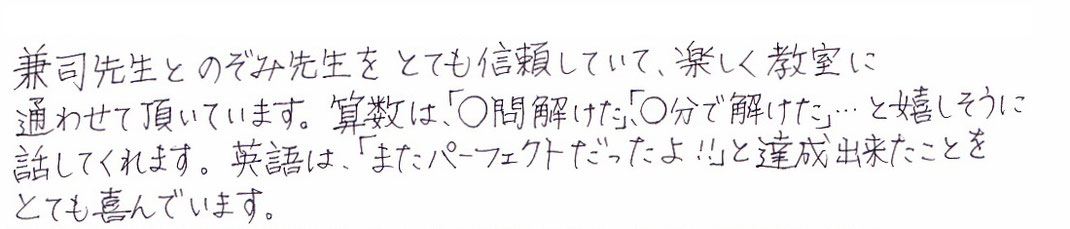 兼司先生とのぞみ先生をとても信頼していて、楽しく教室に
通わせて頂いています。算数は、「〇問解けた」、「〇分で解けた」…と嬉しそうに
話してくれます。英語は、「またパーフェクトだったよ!!」と達成出来たことを
とても喜んでいます。